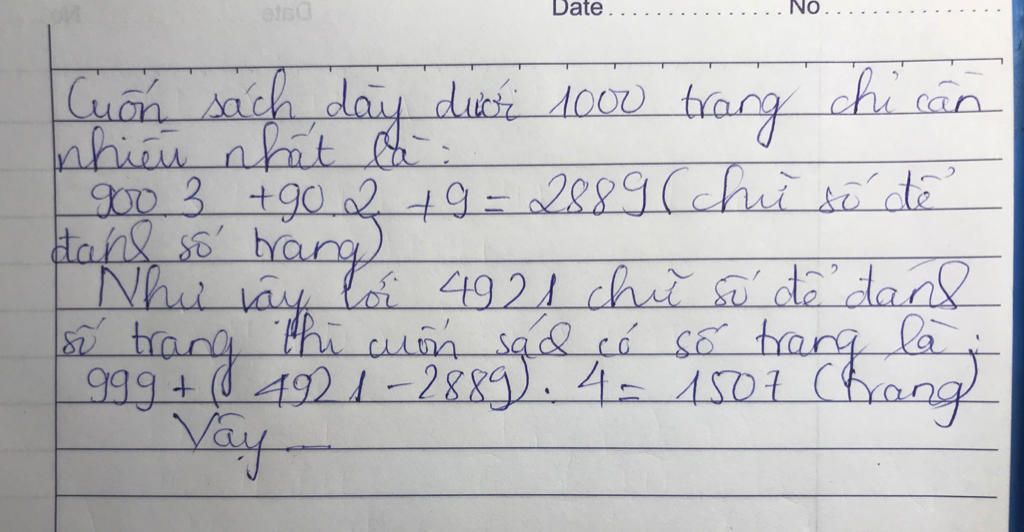 Date.............. No..................
Cuốn sách dày dưới 1000 trang chỉ cần
nhiều nhất là:
900.3 +90.2 +9 = 2889 (chữ số để
đánh số trang)
Như vậy với 4921 chữ số để đánh
số trang thì cuốn sách có số trang là:
999 + (4921 - 2889) : 4 = 1507 (trang)
Vậy —